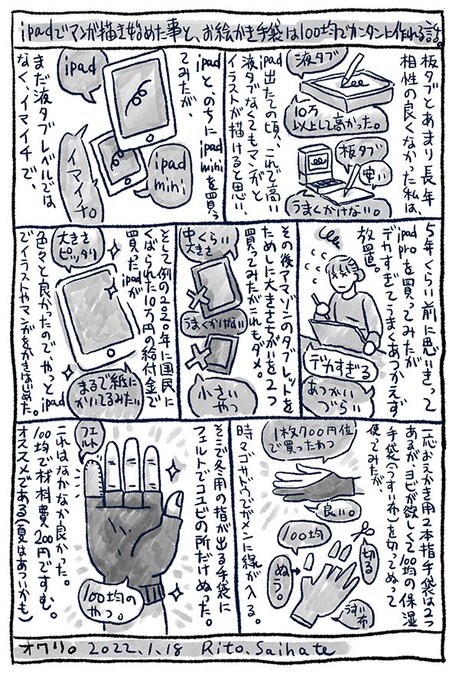 ipadでマンガ描き始めた事と、お絵かき手袋は100均でカンタンに作れる話。
板タブとあまり長年
相性の良くなかった私は、
液タブ
10万
以上して高かった。
板タブ
安い
うまくかけない。
ipad出たての頃、これで高い
液タブなくてもマンガと
イラストが描けると思い、
ipadと、のちにipad miniを買っ
てみたが、
まだ液タブレベルでは
なく、イマイチで、
ipad
ipad
mini
イマイチ。
5年くらい前に思いきって
ipad proを買ってみたが
デカすぎてうまくあつかえず
放置。
デカすぎる
あつかい
づらい
その後アマゾンのタブレットを
ためしに大きさちがいを2つ
買ってみたがこれもダメ。
中くらい
大きさ
うまくかけない
小さい
やつ
そして例の2020年に国民に
くばられた10万円の給付金で
買ったipadが
大きさ
ピッタリ
まるで紙に
かいてるみたい。
色々と良かったのでやってipad
でイラストやマンガをかきはじめた。
一応おえかき用2本指手袋は2つ
あるがヨビが欲しくて100均の保湿
手袋(うすい布)を切ってぬって
使ってみたが、
1枚700円位
で買ったやつ
良い。
100均
切る
ぬう。
うすい布
時々ゴサドウでガメンに線が入る。
そこで冬用の指が出る手袋に
フェルトでコユビの所だけぬった。
フェルト
100均の
やつ。
これはなかなか良かった。
100均で材料費200円ですむ。
オススメである(夏はあついかも)
オワリ。 2022.1.18 Rito.Saihate